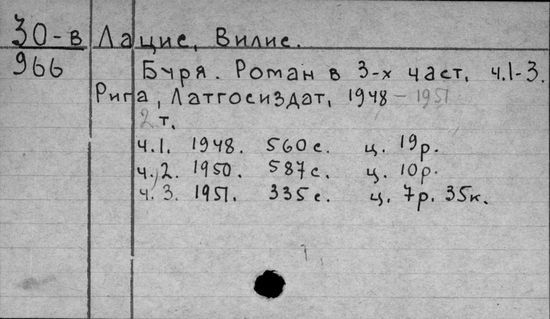 30-в Лацис, Вилис.
966 Буря. Роман в 3-х част. ч.1-3.
Рига, Латгосиздат, 1948 - 1951
2 т.
ч.1. 1948. 560 с. ц. 19р.
ч.2. 1950. 587 с. ц. 10р.
ч.3. 1951. 335 с. ц. 7р. 35к.